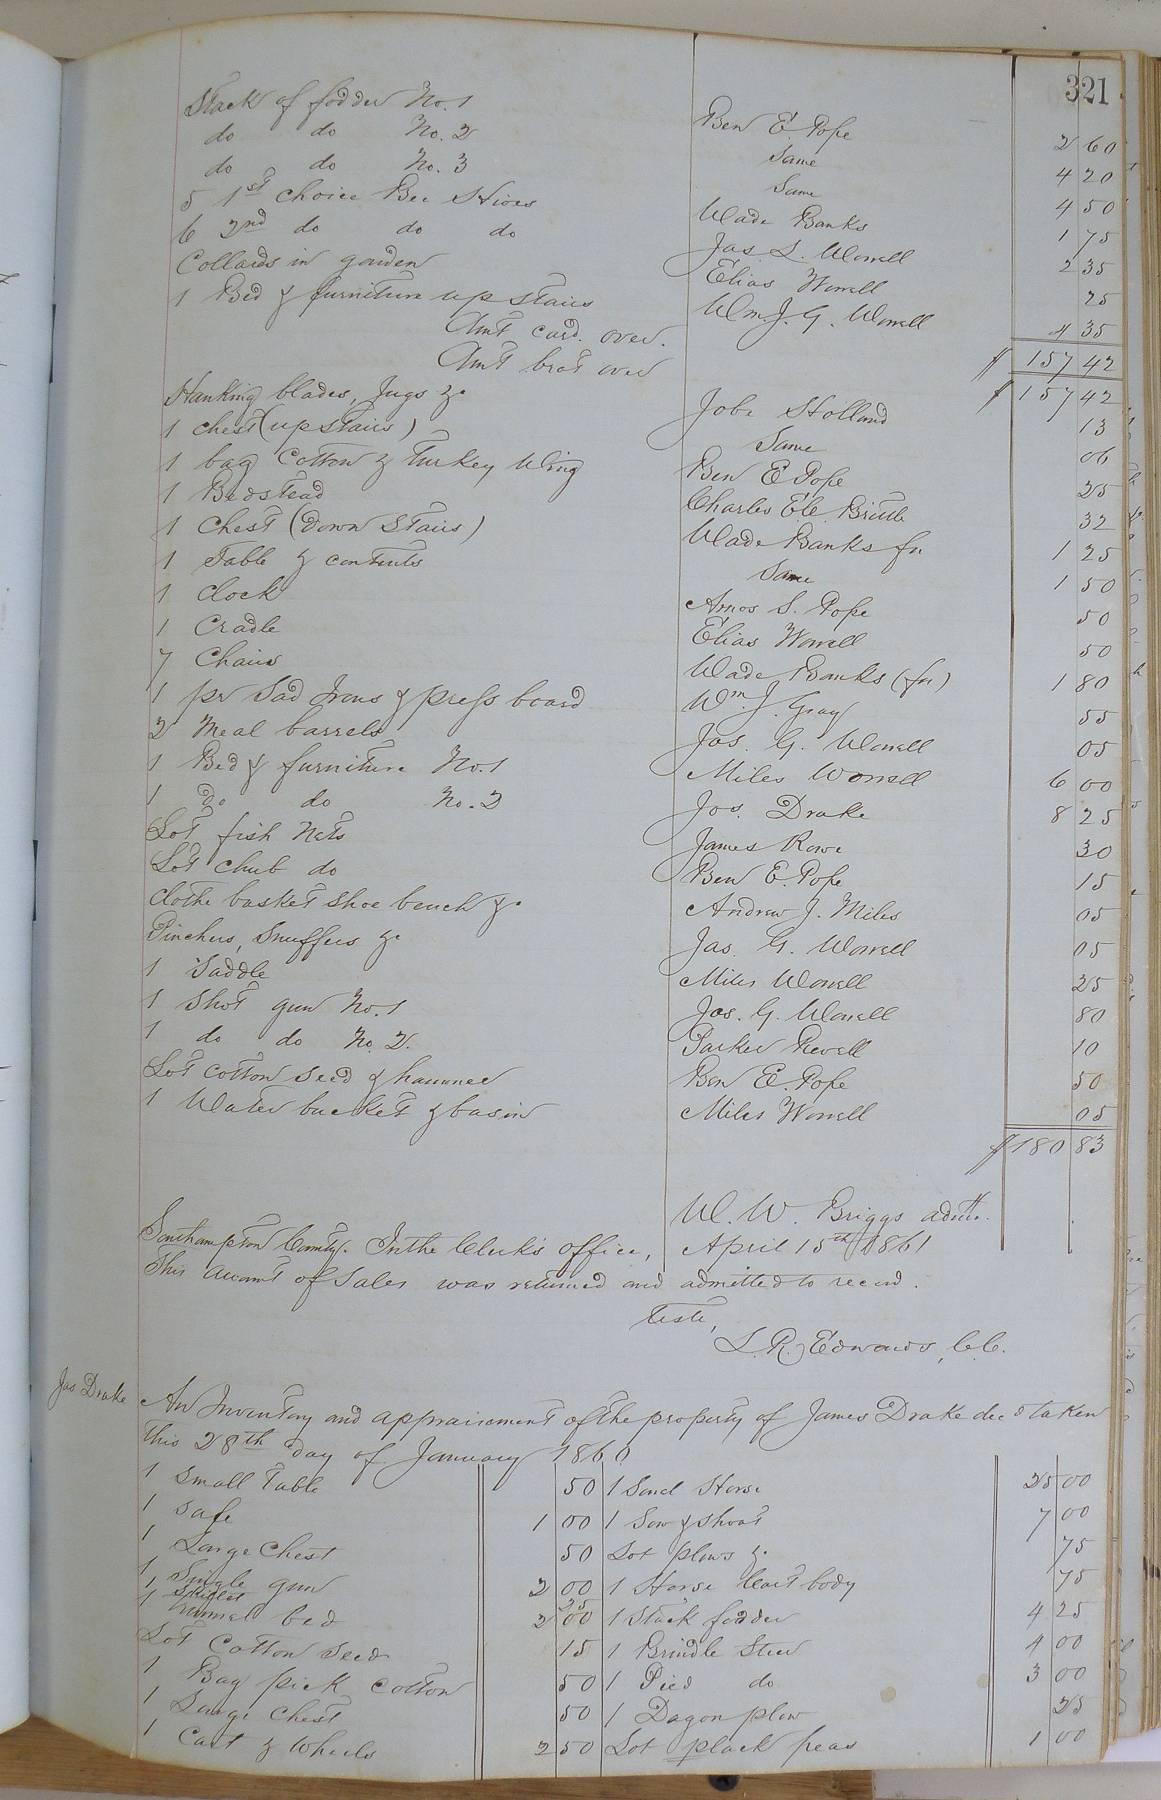 321
Stack of fodder No. 1 Ben E. Pope 2 60
do do No. 2 Same 4 20
do do No. 3 Same 4 50
5 1st choice Bee Hives Wade Banks 1 75
6 2nd do do do Jas. L. Worrell 2 35
Collards in garden Elias Worrell 25
1 Bed & furniture up stairs Wm. J. G. Worrell 4 35
Amt card. over. $ 157 42
Amt brot over $ 157 42
Hanking blades, Jugs &c Jobe Holland 13
1 chest (up stairs) Same 06
1 bag Cotton & Turkey Wing Ben E Pope 25
1 Bedstead Charles E. Brittle 32
1 Chest (Down Stairs) Wade Banks fn 1 25
1 Table & contents Same 1 50
1 Clock Amos S. Pope 50
1 Cradle Elias Worrell 50
7 Chairs Wade Banks (fn) 1 80
1 pr Sad Irons & press board Wm J. Gray 55
2 Meal barrels Jas. G. Worrell 05
1 Bed & furniture No. 1 Miles Worrell 6 00
1 do do No. 2 Jos. Drake 8 25
Lot fish Nets James Rowe 30
Lot Chub do Ben E. Pope 15
Clothe basket shoe bench &c Andrew J. Miles 05
Pinchers, Snuffers &c Jas. G. Worrell 05
1 Saddle Miles Worrell 25
1 Shot gun No. 1 Jos. G. Worrell 80
1 do do No. 2. Parker 10
Lot cotton seed & hammer Ben E. Pope 50
1 Water bucket & basin Miles Worrell 05
$ 180 83
W. W. Briggs admtr.
Southampton County. In the Clerk's office, April 15th 1861
This account of Sales was returned and admitted to record.
Teste,
L. R. Edwards, C.C.
Jas Drake
An Inventory and appraisement of the property of James Drake decd taken
this 28th day of January 1860
1 Small Table 50 1 Horse 25 00
1 Safe 1 00 1 Sow & Shoat 7 00
1 Large Chest 50 Lot plows &c 75
1 Single gun 2 00 1 Horse Cart body 75
1 Skillet 25
1 Trunnel bed 2 00 1 Stack fodder 4 25
Lot Cotton Seed 15 1 Brindle Steer 4 00
1 Bag pick cotton 50 1 Pied do 3 00
1 Large Chest 50 1 Dagon plow 25
1 Cart & Wheels 2 50 Lot black peas 1 00